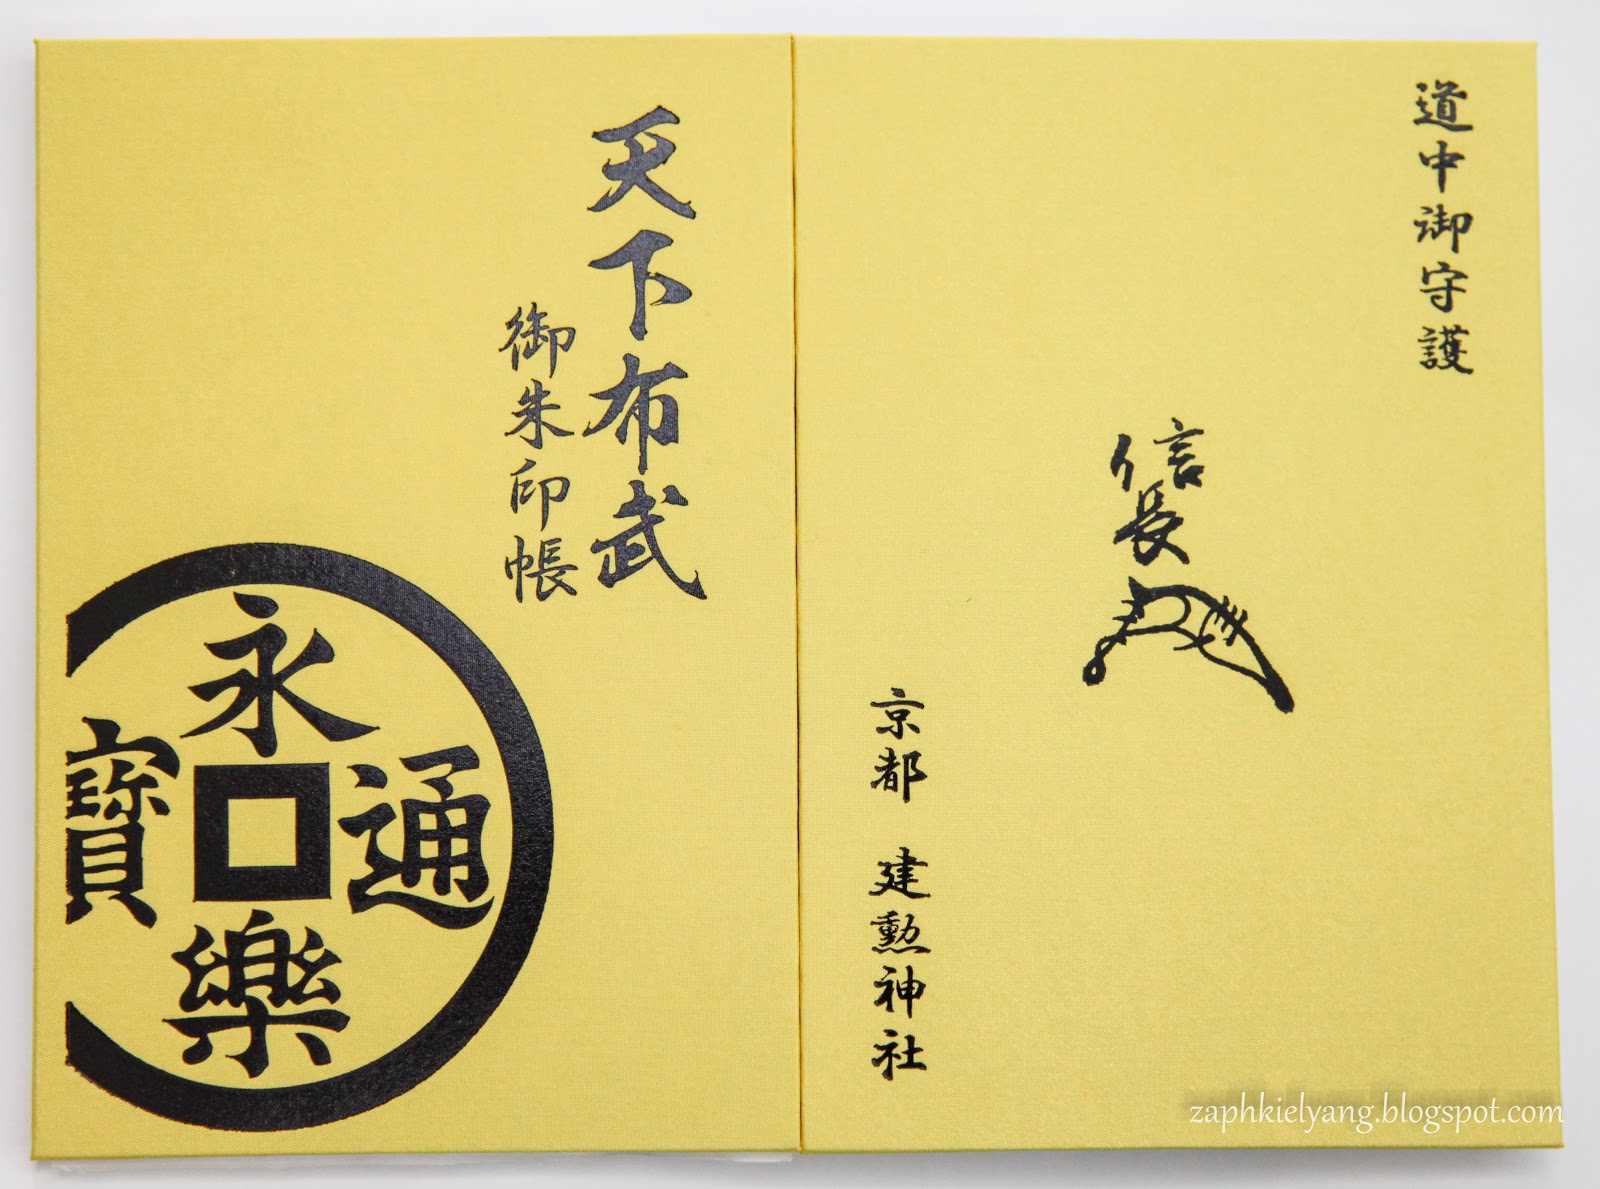 道中御守護
信長
京都 建勲神社
天下布武
御朱印帳
永樂通寶
zaphkielyang.blogspot.com